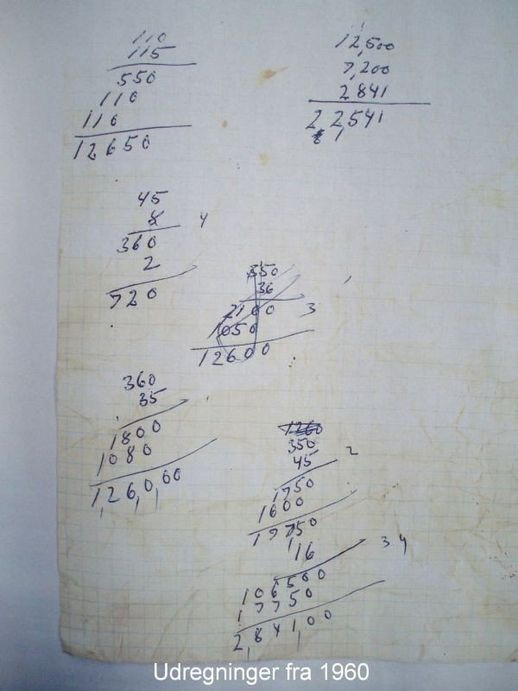 110
115
550
110
110
12650
12,500
7,200
2841
22541
45
8 4
360
2
720
350
36
2100 3
1050
12600
360
35
1800
1080
1,26,0,00
350
45 2
1750
1600
17750
16 3 4
106500
17750
2,841,00
Udregninger fra 1960